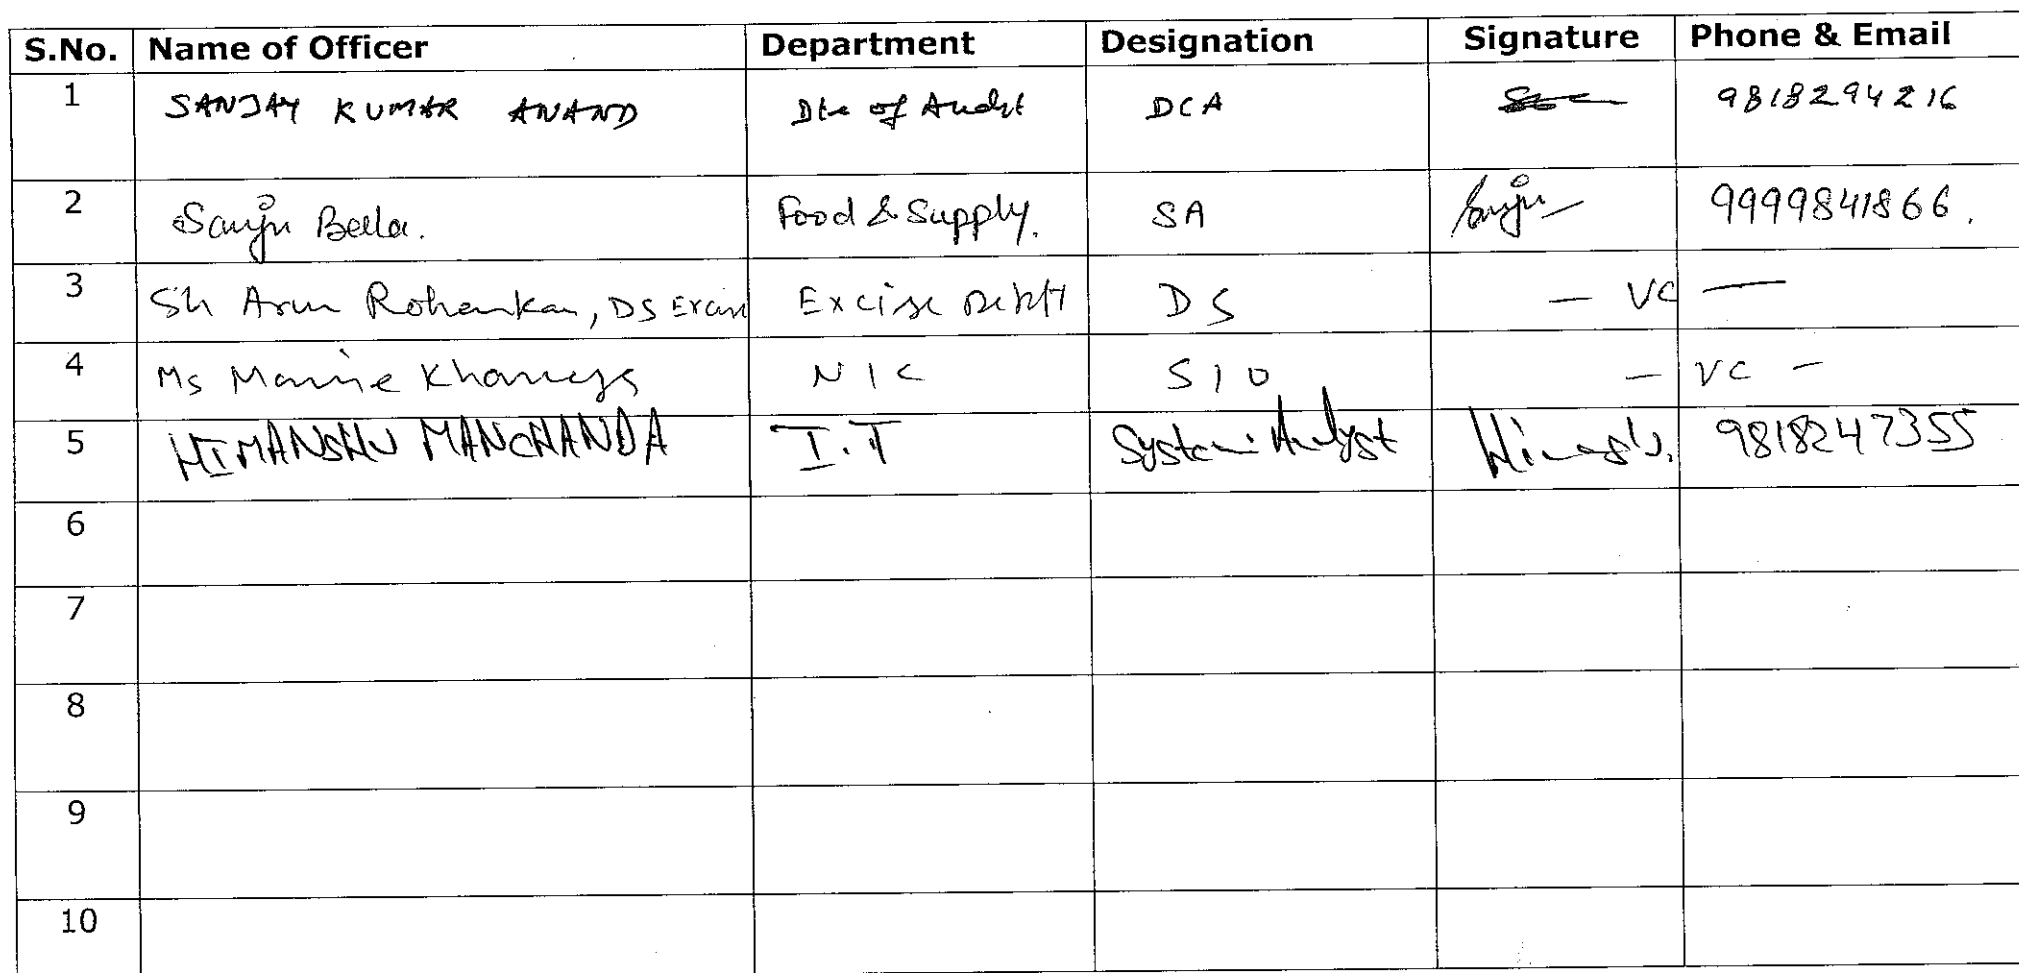 S.No. Name of Officer Department Designation Signature Phone & Email
1 SANJAY KUMAR ANAND Dte of Audit DCA 9818294216
2 Sanju Bella. Food & Supply. SA Sanju 9999841866.
3 Sh Arun Rohankar, DS Excise Excise Deptt DS — VC —
4 Ms NIC SIO — VC —
5 HIMANSHU MANCHANDA I.T System Analyst 9818247355
6
7
8
9
10